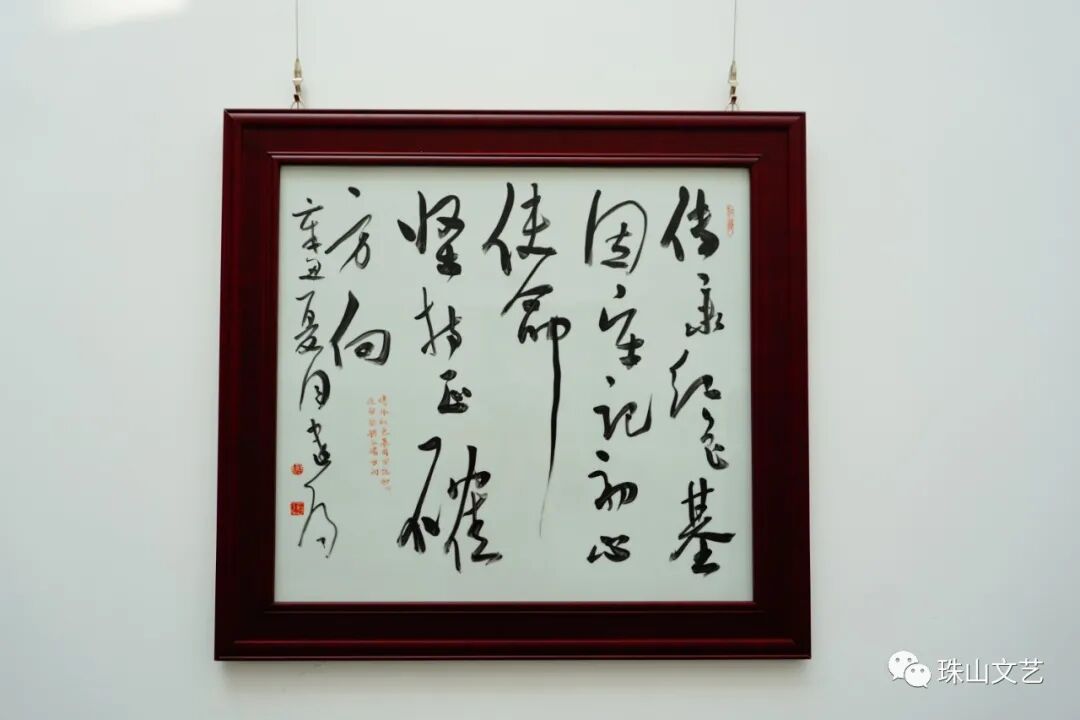 传承红色基
因牢记初心
使命
坚持正确
方向
辛丑夏月建
珠山文艺